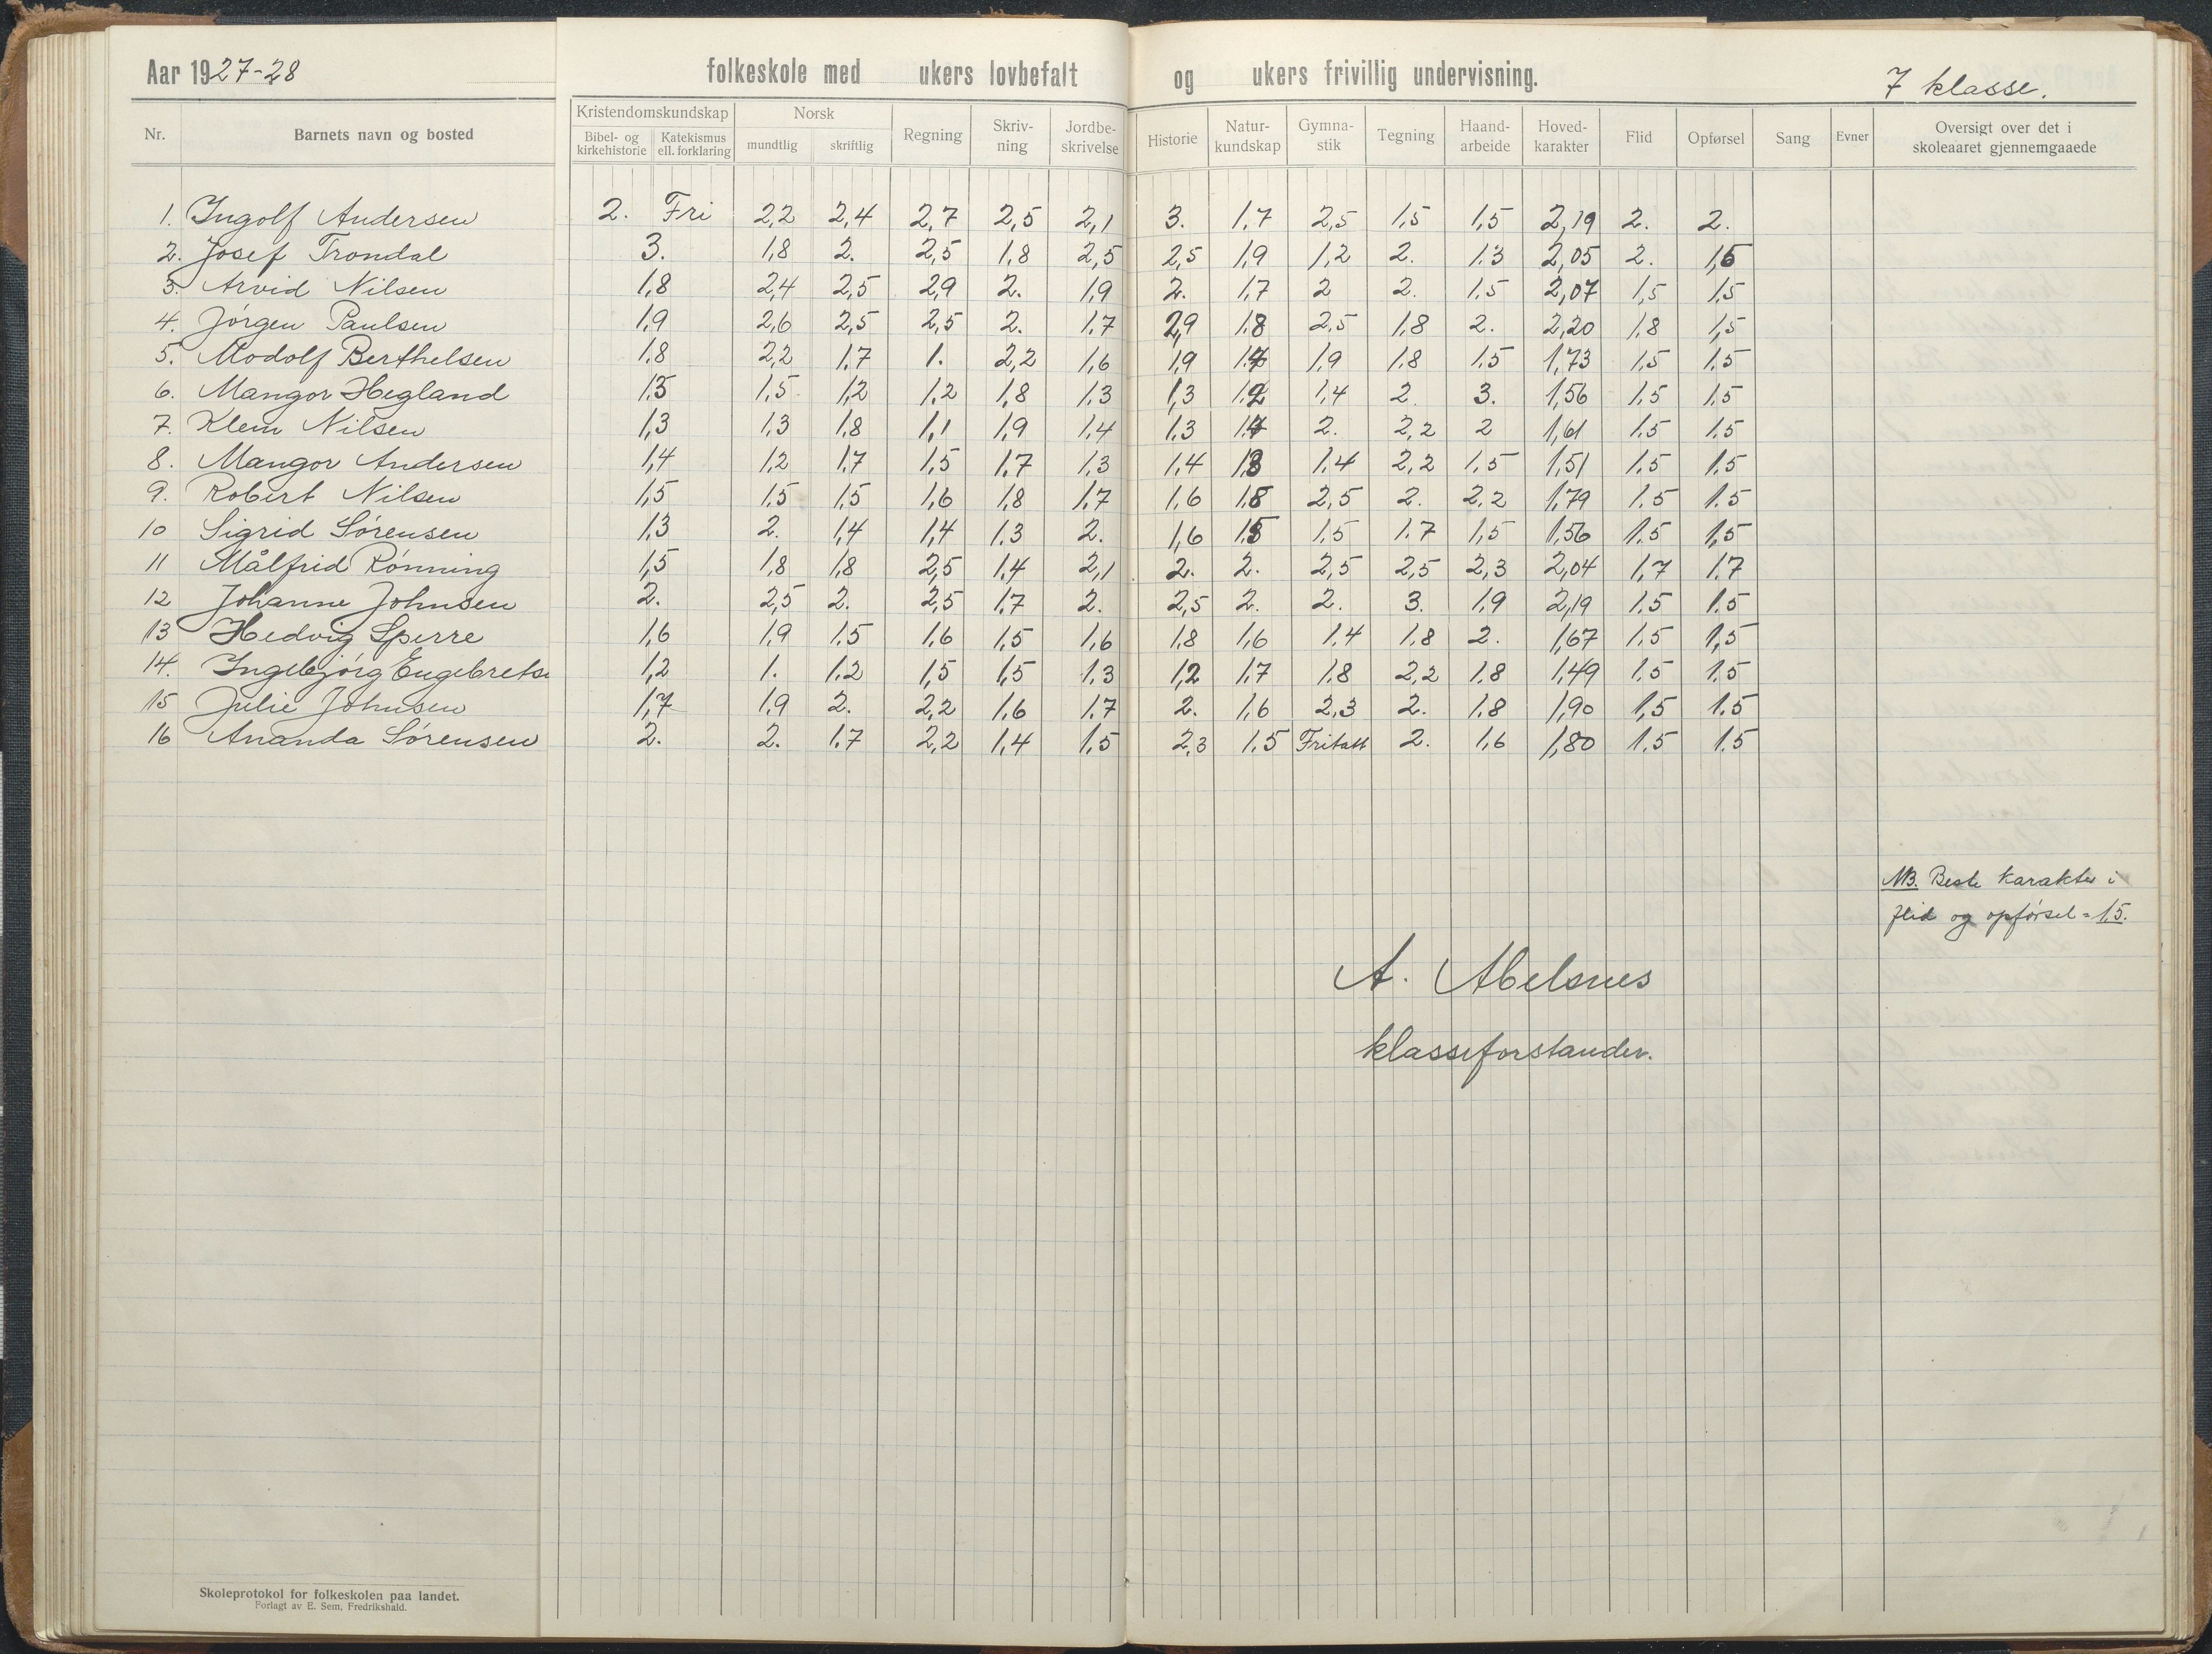 Aar 1927-28 folkeskole med ukers lovbefalt og ukers frivillig undervisning. 7 klasse.
Nr. Barnets navn og bosted Kristendomskundskap Bibel- og kirkehistorie Katekismus ell. forklaring Norsk mundtlig skriftlig Regning Skriv-ning Jordbe-skrivelse Historie Natur-kundskap Gymna-stik Tegning Haand-arbeide Hoved-karakter Flid Opførsel Sang Evner Oversigt over det i skoleaaret gjennemgaaede
1. Ingolf Andersen 2. Fri 2,2 2,4 2,7 2,5 2,1 3. 1,7 2,5 1,5 1,5 2,19 2. 2.
2. Josef Trondal 3. 1,8 2. 2,5 1,8 2,5 2,5 1,9 1,2 2. 1.3 2,05 2. 1,5
3. Arvid Nilsen 1,8 2,4 2,5 2,9 2. 1,9 2. 1,7 2 2. 1.5 2,07 1,5 1,5
4. Jörgen Paulsen 1,9 2,6 2,5 2,5 2. 1.7 2,9 1.8 2.5 1,8 2. 2,20 1,8 1,5
5. Modolf Berthelsen 1,8 2,2 1.7 1. 2,2 1,6 1,9 1,9 1.8 1.5 1,73 1,5 1.5
6. Mangor Hegland 1,5 1,5 1,2 1,2 1,8 1.3 1,3 1.2 1,4 2. 3. 1,56 1,5 1.5
7. Klem Nilsen 1,3 1.3 1.8 1,1 1,9 1.4 1.3 2. 2,2 2 1,61 1.5 1.5
8. Mangor Andersen 1,4 1,2 1.7 1,5 1,7 1,3 1,4 1.3 1.4 2,2 1,5 1,51 1,5 1,5
9. Robert Nilsen 1,5 1.5 1.5 1,6 1,8 1,7 1,6 1.8 2,5 2. 2,2 1,79 1.5 1.5
10 Sigrid Sörensen 1,3 2. 1,4 1,4 1.3 2. 1,6 1.5 1.5 1.7 1,5 1,56 1.5 1,5
11 Målfrid Rönning 1,5 1,8 1,8 2,5 1.4 2,1 2. 2. 2,5 2,5 2,3 2,04 1,7 1.7
12 Johanne Johnsen 2. 2,5 2. 2,5 1.7 2. 2,5 2. 2. 3. 1,9 2,19 1.5 1.5
13 Hedvig Sperre 1,6 1,9 1.5 1.6 1,5 1,6 1.8 1,6 1.4 1,8 2. 1,67 1,5 1,5
14. Ingebjörg Engebrets 1,2 1. 1.2 1,5 1,5 1.3 1,2 1,7 1.8 2,2 1.8 1,49 1.5 1.5
15 Julie Johnsen 1,7 1,9 2. 2,2 1,6 1.7 2. 1,6 2,3 2. 1.8 1,90 1,5 1.5
16 Ananda Sörensen 2. 2. 1.7 2,2 1,4 1,5 2,3 1.5 Fritatt 2. 1,6 1,80 1.5 1.5
NB. Beste karakter i
flid og opförsel = 1.5.
A. Abelsnes
klasseforstander.
Skoleprotokol for folkeskolen paa landet.
Forlagt av E. Sem, Fredrikshald.